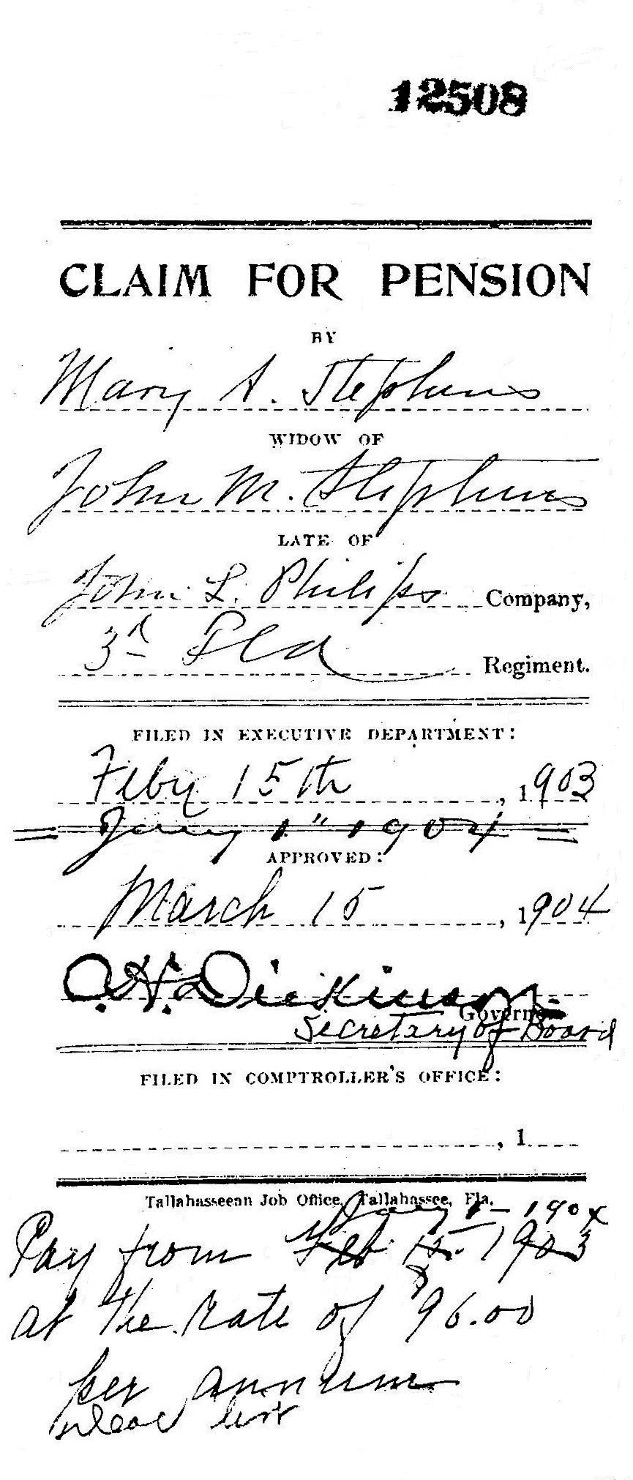 12508
CLAIM FOR PENSION
BY
Mary A. Stephens
WIDOW OF
John M. Stephens
LATE OF
John L. Philips Company,
3d Fla Regiment.
FILED IN EXECUTIVE DEPARTMENT:
Feby 15th, 1903
Jany 1" 1904
APPROVED:
March 15, 1904
Dickinson
Governor
Secretary of Board
FILED IN COMPTROLLER'S OFFICE:
, 1
Tallahasseean Job Office, Tallahassee, Fla.
Jany 1 - 1904
Pay from Feb 15 - 1903
at the rate of $96.00
per annum